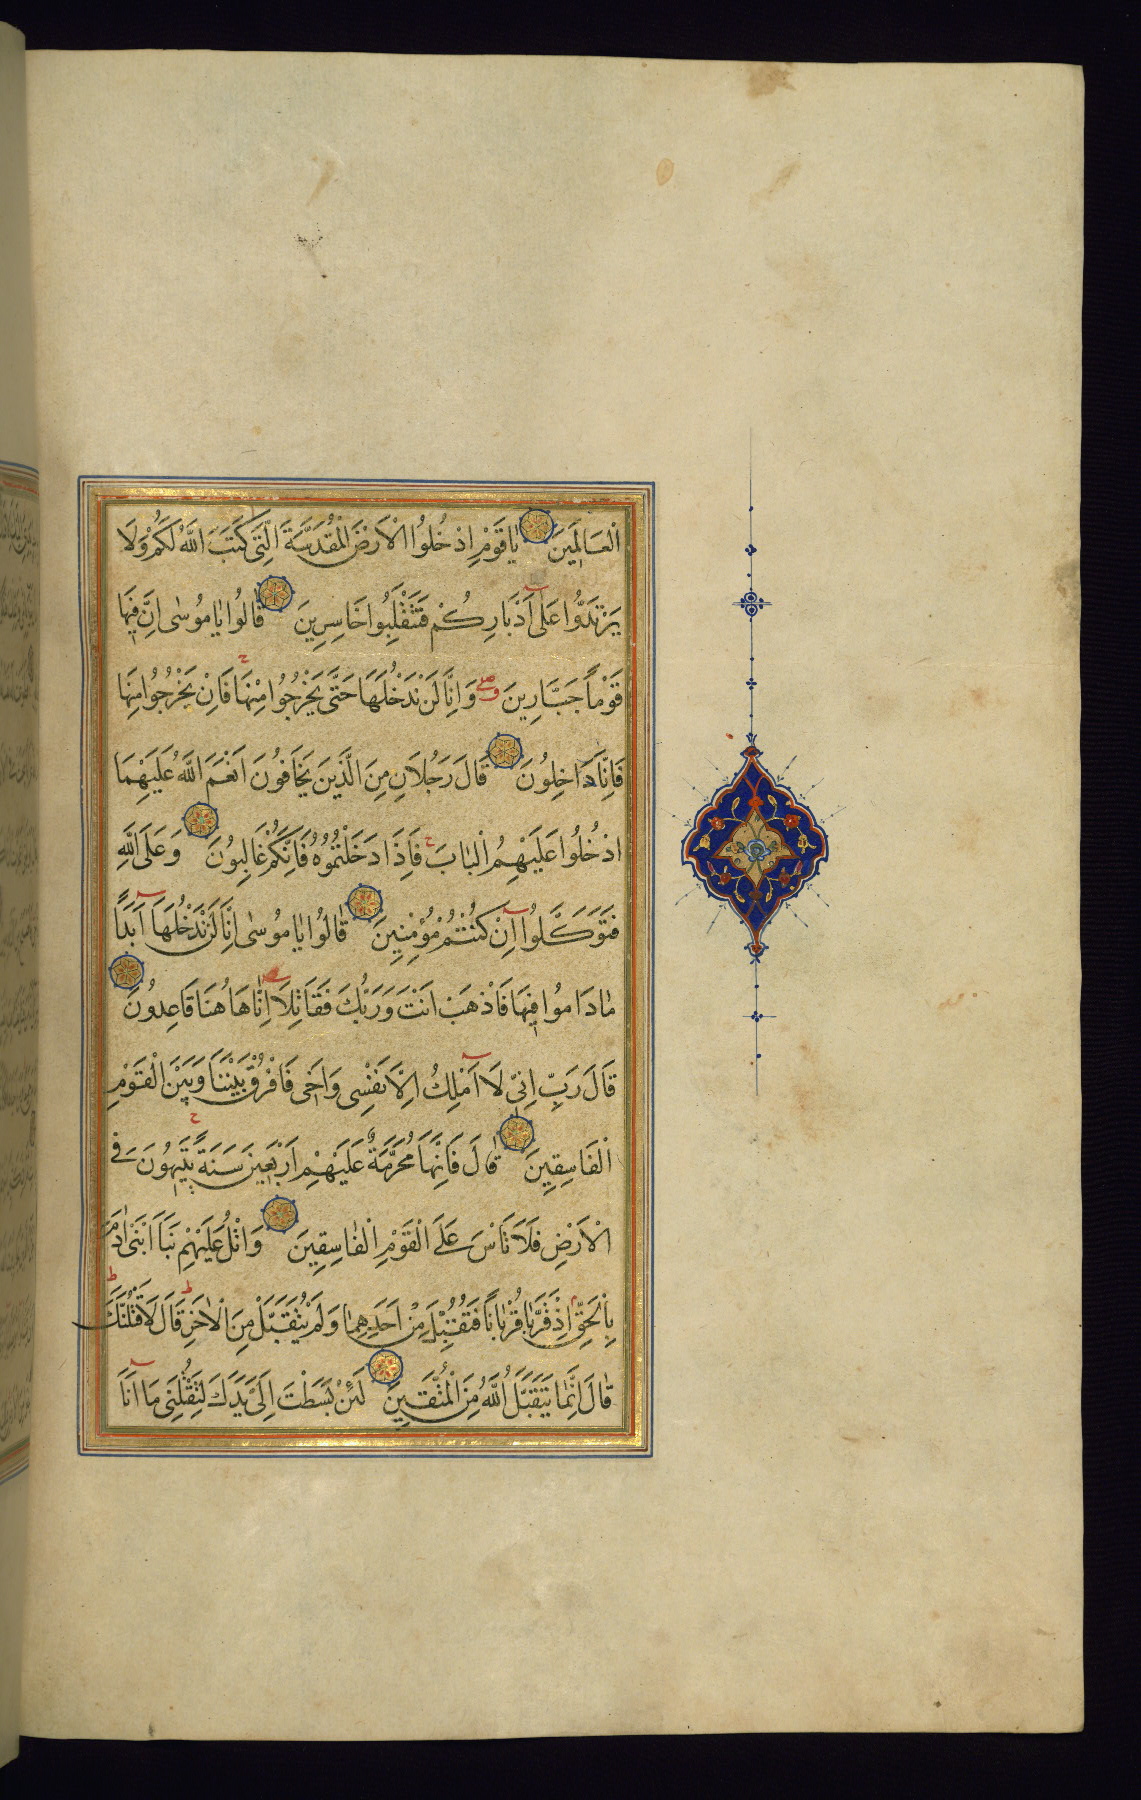 الْعَالَمِينَ يَا قَوْمِ ادْخُلُوا الْاَرْضَ الْمُقَدَّسَةَ الَّتِى كَتَبَ اللّٰهُ لَكُمْ وَلَا
يَرْتَدُّوا عَلٰٓى اَدْبَارِكُمْ فَتَنْقَلِبُوا خَاسِرِينَ قَالُوا يَا مُوسٰى اِنَّ فِيهَا
قَوْماً جَبَّارِينَ وَاِنَّا لَنْ نَدْخُلَهَا حَتّٰى يَخْرُجُوا مِنْهَا فَاِنْ يَخْرُجُوا مِنْهَا
فَاِنَّا دَاخِلُونَ قَالَ رَجُلَانِ مِنَ الَّذِينَ يَخَافُونَ اَنْعَمَ اللّٰهُ عَلَيْهِمَا
ادْخُلُوا عَلَيْهِمُ الْبَابَ فَاِذَا دَخَلْتُمُوهُ فَاِنَّكُمْ غَالِبُونَ وَعَلَى اللّٰهِ
فَتَوَكَّلُوٓا اِنْ كُنْتُمْ مُؤْمِنِينَ قَالُوا يَا مُوسٰى اِنَّا لَنْ نَدْخُلَهَآ اَبَدًا
مَا دَامُوا فِيهَا فَاذْهَبْ اَنْتَ وَرَبُّكَ فَقَاتِلَآ اِنَّا هَاهُنَا قَاعِدُونَ
قَالَ رَبِّ اِنِّى لَآ اَمْلِكُ اِلَّا نَفْسِى وَاَخِى فَافْرُقْ بَيْنَنَا وَبَيْنَ الْقَوْمِ
الْفَاسِقِينَ قَالَ فَاِنَّهَا مُحَرَّمَةٌ عَلَيْهِمْ اَرْبَعِينَ سَنَةً يَتِيهُونَ فِى
الْاَرْضِ فَلَا تَاْسَ عَلَى الْقَوْمِ الْفَاسِقِينَ وَاتْلُ عَلَيْهِمْ نَبَاَ ابْنَىْ اٰدَمَ
بِالْحَقِّ اِذْ قَرَّبَا قُرْبَاناً فَتُقُبِّلَ مِنْ اَحَدِهِمَا وَلَمْ يُتَقَبَّلْ مِنَ الْاٰخَرِ قَالَ لَاَقْتُلَنَّكَ
قَالَ اِنَّمَا يَتَقَبَّلُ اللّٰهُ مِنَ الْمُتَّقِينَ لَئِنْ بَسَطْتَ اِلَىَّ يَدَكَ لِتَقْتُلَنِى مَآ اَنَا